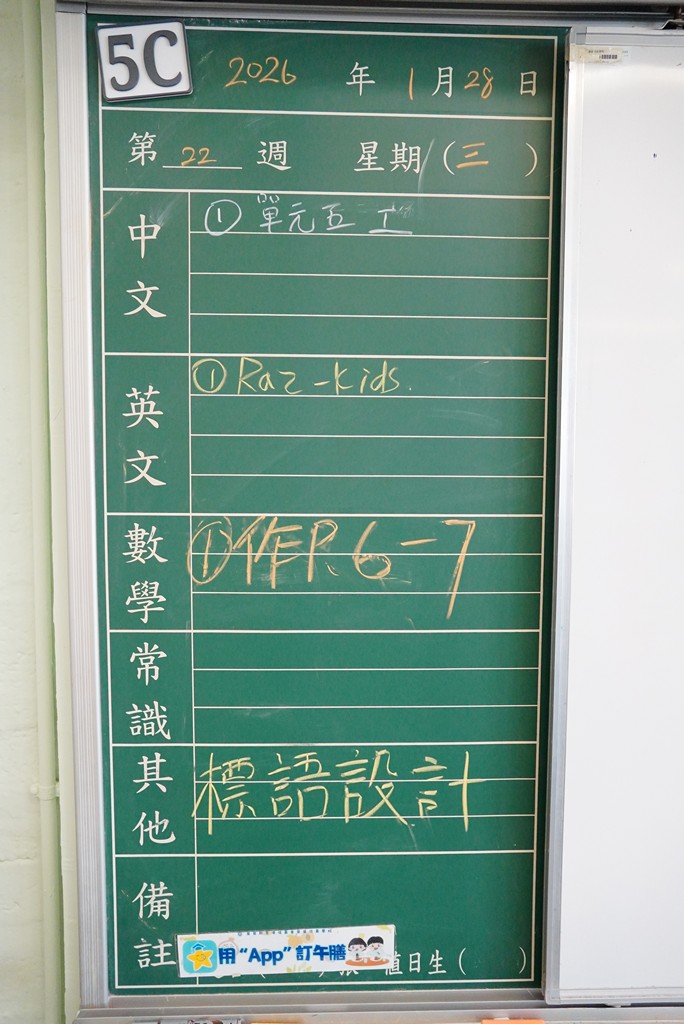 5C
2026 年 1 月 28 日
第 22 週 星期(三)
中文
① 單元五工
英文
① Raz-kids.
數學
① 作P.6-7
常識
其他
標語設計
備註
用“App”訂午膳
值日生( )